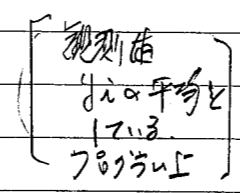 観測値
yiの平均と
している.
プログラム上